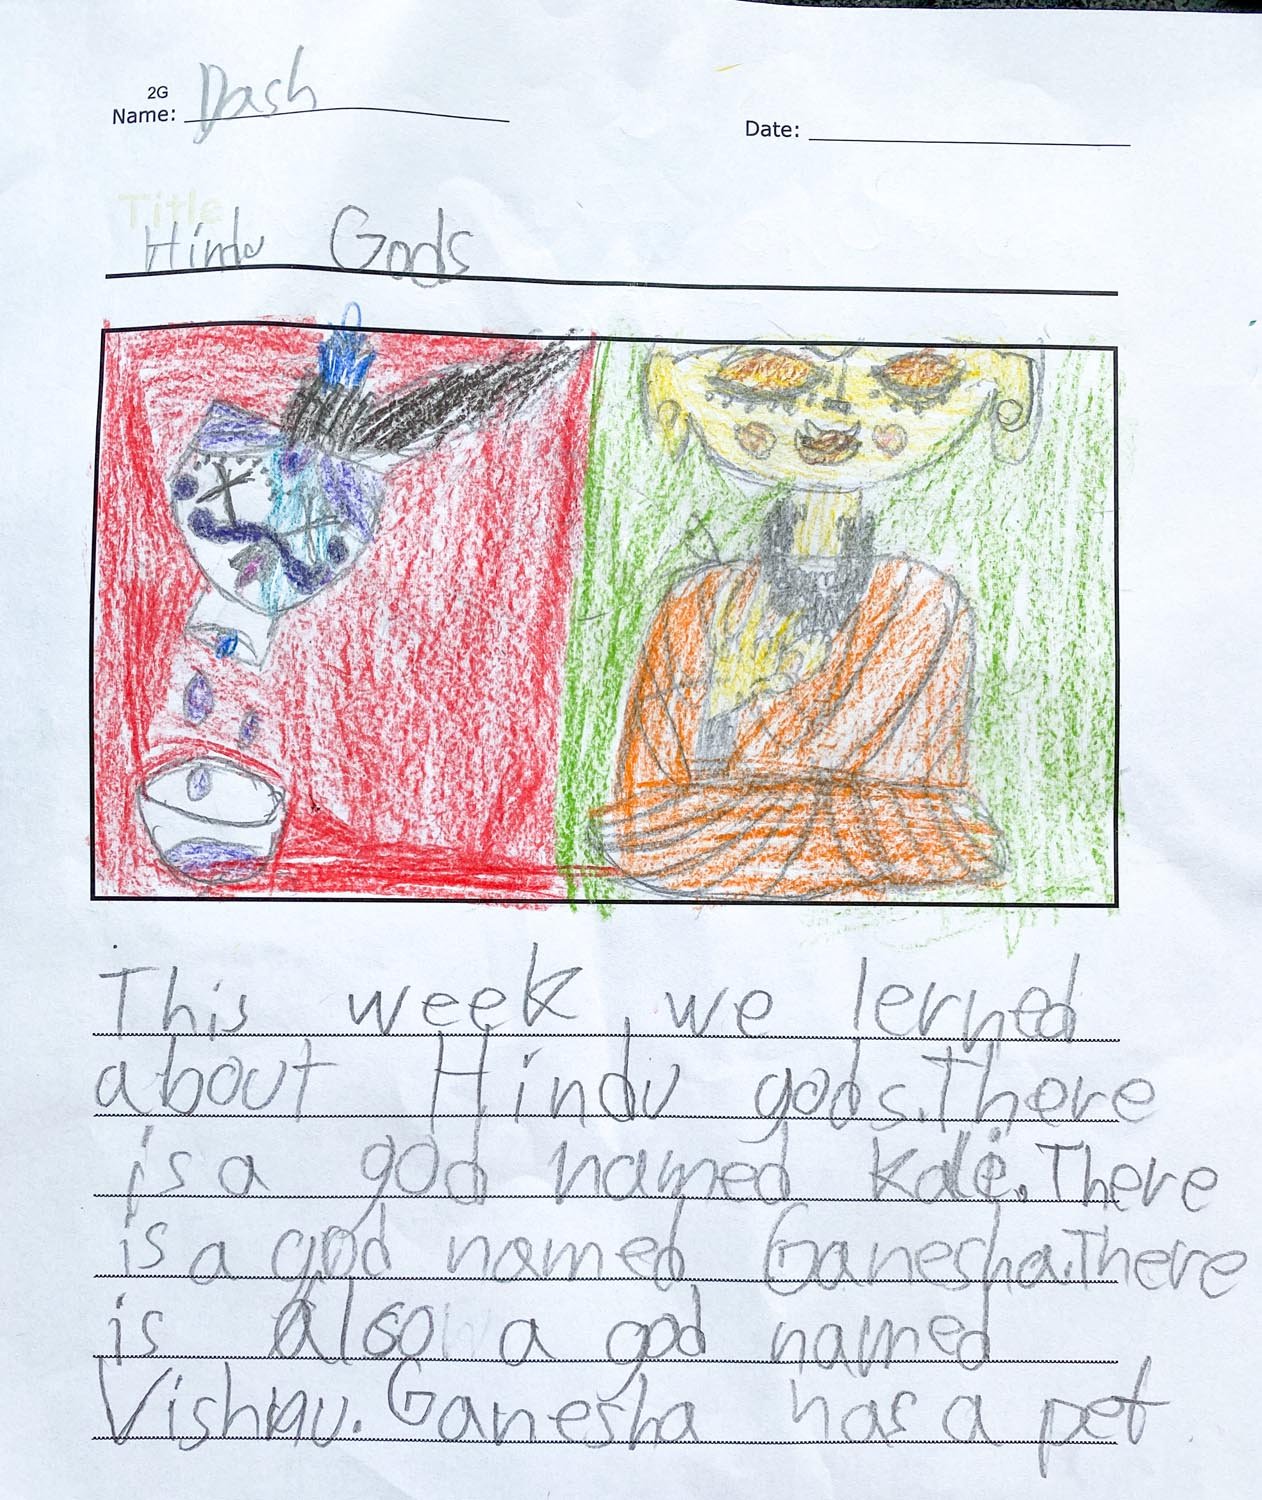 2G
Name: Dash
Date:
Title
Hindu Gods
This week, we lerned
about Hindu gods. There
is a god named Kali. There
is a god named Ganesha. There
is also a god named
Vishnu. Ganesha has a pet